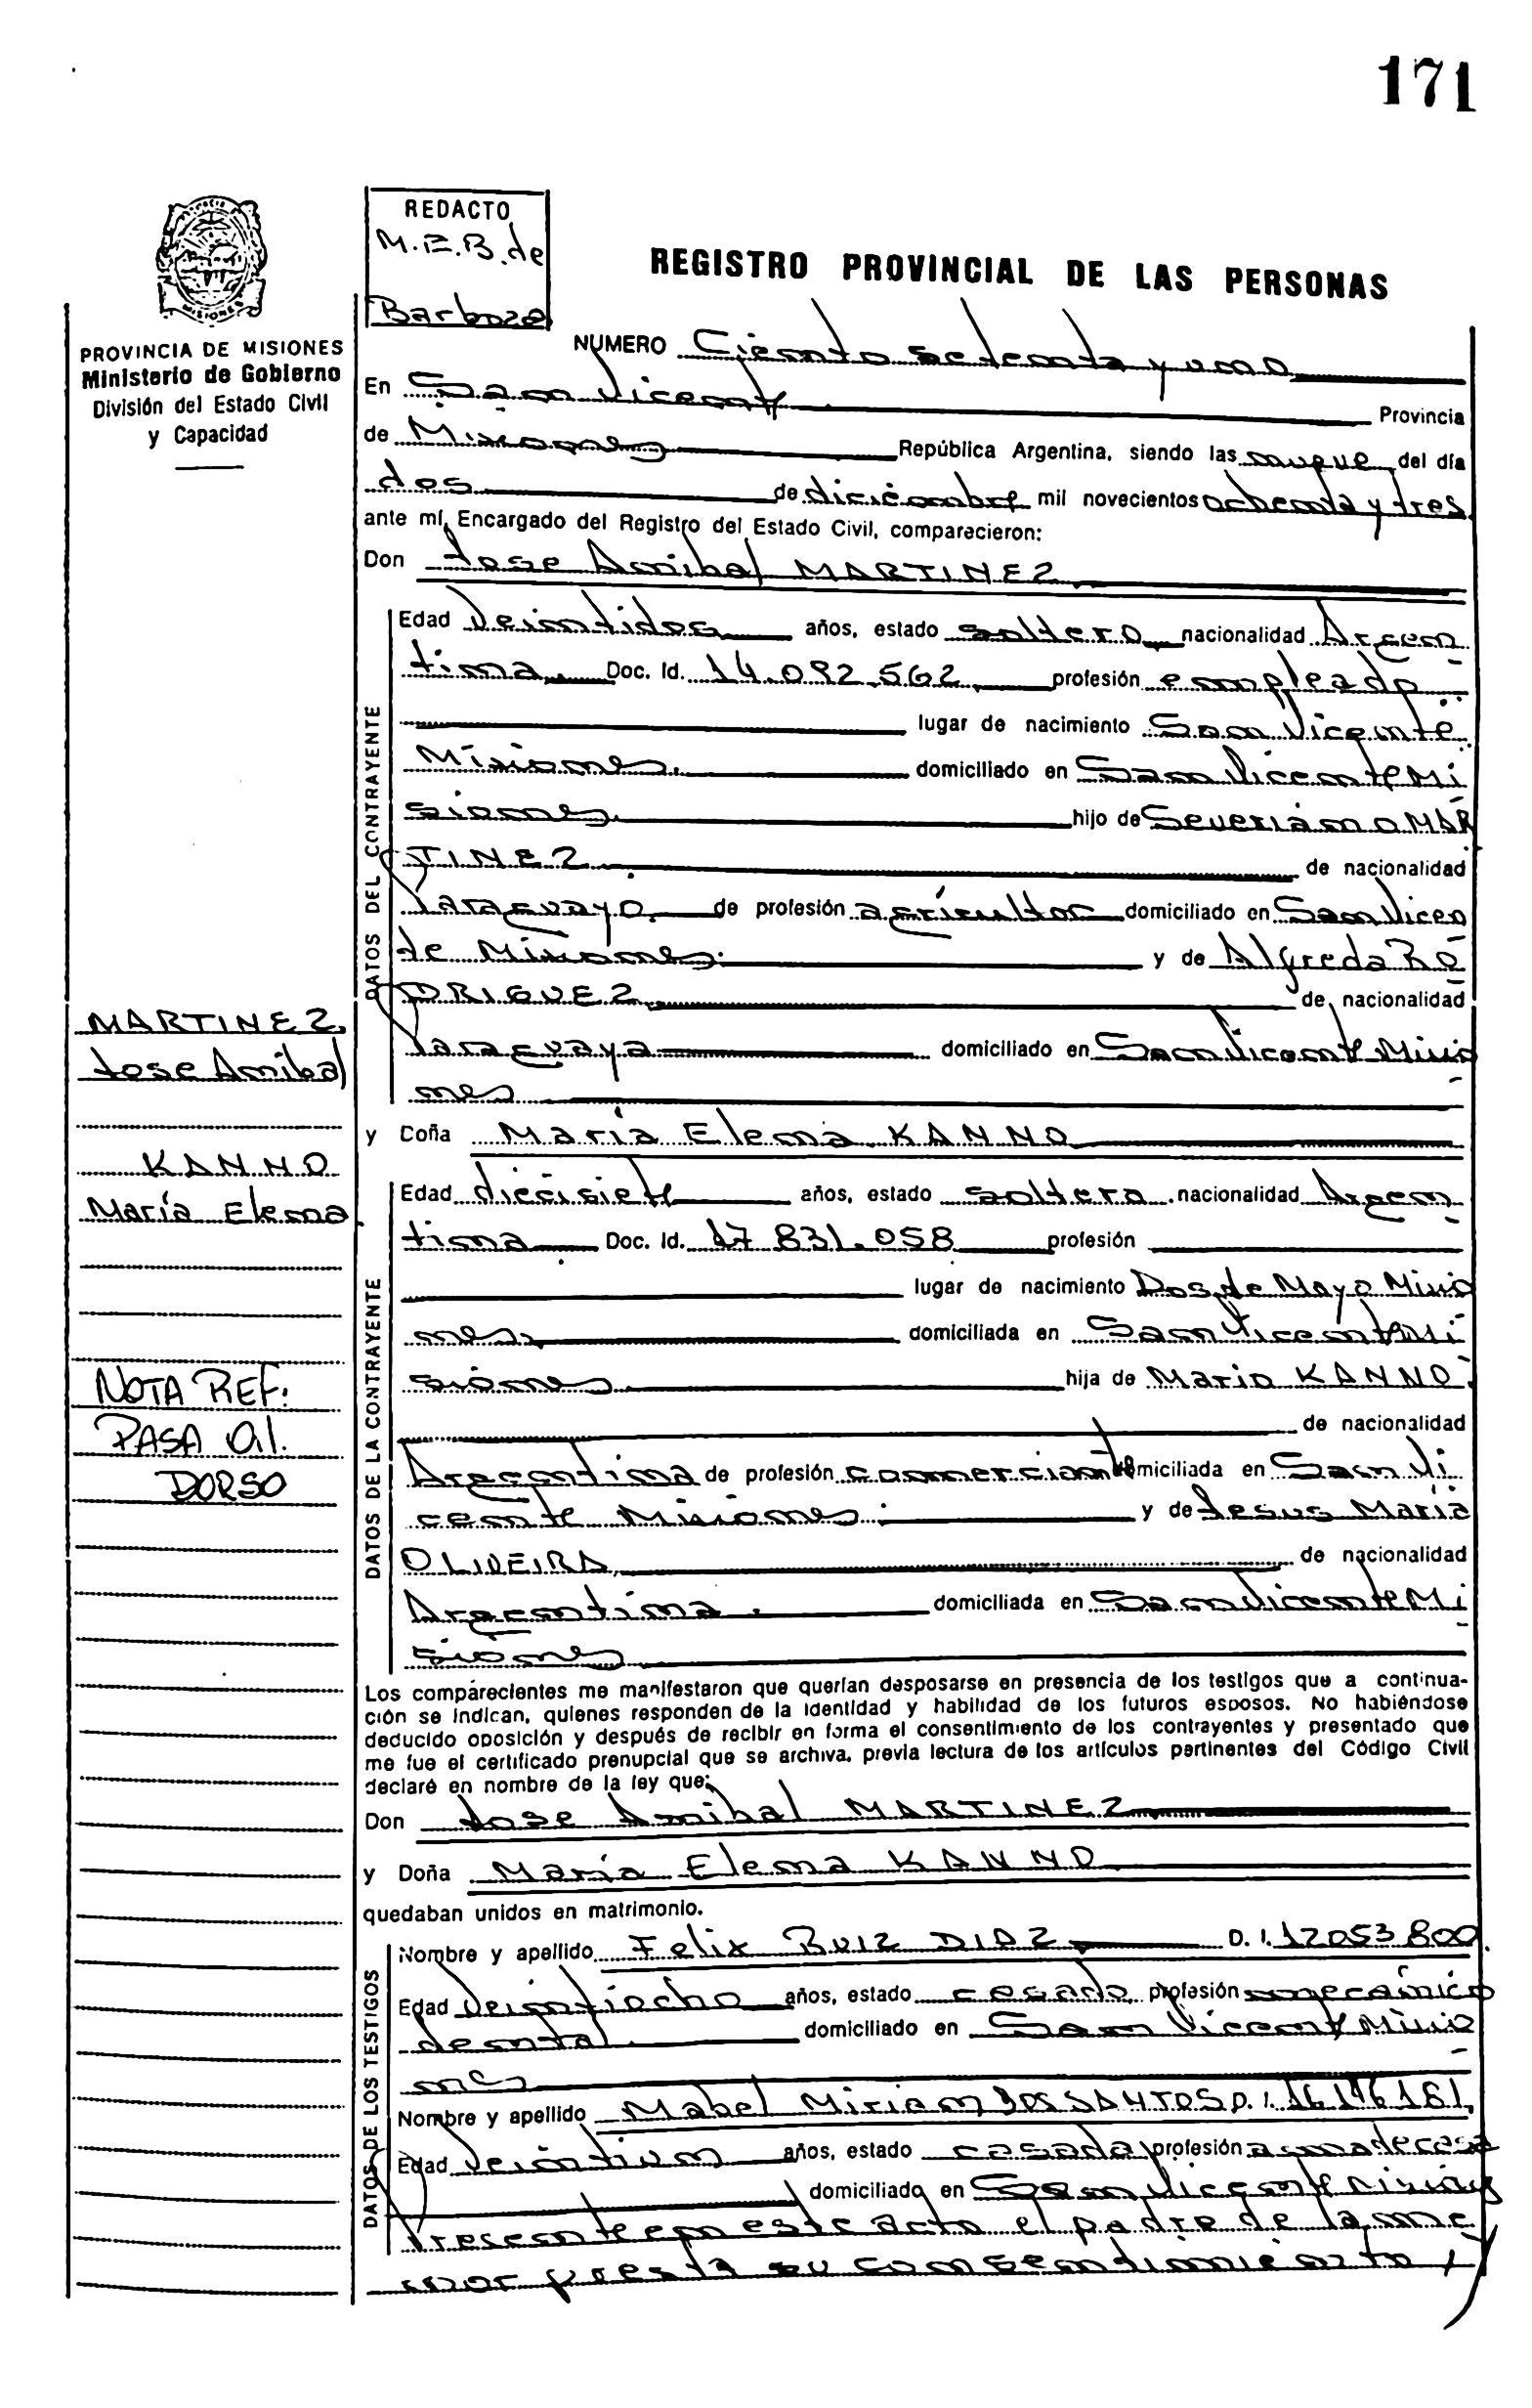 171
REDACTO
M.E.B. de
Barboza
PROVINCIA DE MISIONES
Ministerio de Gobierno
División del Estado Civil
y Capacidad
REGISTRO PROVINCIAL DE LAS PERSONAS
NUMERO Ciento setenta y uno
En San Vicente Provincia
de Misiones República Argentina, siendo las nueve del día
dos de diciembre mil novecientos ochenta y tres
ante mí, Encargado del Registro del Estado Civil, comparecieron:
Don Jose Anibal MARTINEZ
DATOS DEL CONTRAYENTE
Edad Veintidos años, estado soltero nacionalidad Argen
tina Doc. Id. 14.092.562 profesión empleado
lugar de nacimiento San Vicente
Misiones. domiciliado en San Vicente Mi
siones hijo de Severiano MAR
TINEZ de nacionalidad
Paraguayo de profesión agricultor domiciliado en San Vicen
te Misiones. y de Alfreda RO
DRIGUEZ de nacionalidad
Paraguaya domiciliado en San Vicente Misio
nes
MARTINEZ
Jose Anibal
KANNO
María Elena
NOTA REF:
PASA al.
DORSO
y Doña María Elena KANNO
DATOS DE LA CONTRAYENTE
Edad diecisiete años, estado soltera nacionalidad Argen
tina Doc. Id. 17 831.058 profesión
lugar de nacimiento Dos de Mayo Misio
nes. domiciliada en San Vicente Mi
siones hija de Mario KANNO
de nacionalidad
Argentina de profesión comerciante domiciliada en San Vi
cente Misiones. y de Jesus María
OLIVEIRA de nacionalidad
Argentina. domiciliada en San Vicente Mi
siones
Los comparecientes me manifestaron que querían desposarse en presencia de los testigos que a continua-
ción se indican, quienes responden de la identidad y habilidad de los futuros esposos. No habiéndose
deducido oposición y después de recibir en forma el consentimiento de los contrayentes y presentado que
me fue el certificado prenupcial que se archiva, previa lectura de los artículos pertinentes del Código Civil
declaré en nombre de la ley que:
Don Jose Anibal MARTINEZ
y Doña María Elena KANNO
quedaban unidos en matrimonio.
DATOS DE LOS TESTIGOS
Nombre y apellido Felix RUIZ DIAZ D.I. 12053800
Edad Veintiocho años, estado casado profesión mecánico
dental domiciliado en San Vicente Misio
nes
Nombre y apellido Mabel Miriam DOS SANTOS D.I. 16146161
Edad Veintiun años, estado casada profesión ama de casa
domiciliado en San Vicente Misiones
Presente en este acto el padre de la me
nor presta su consentimiento